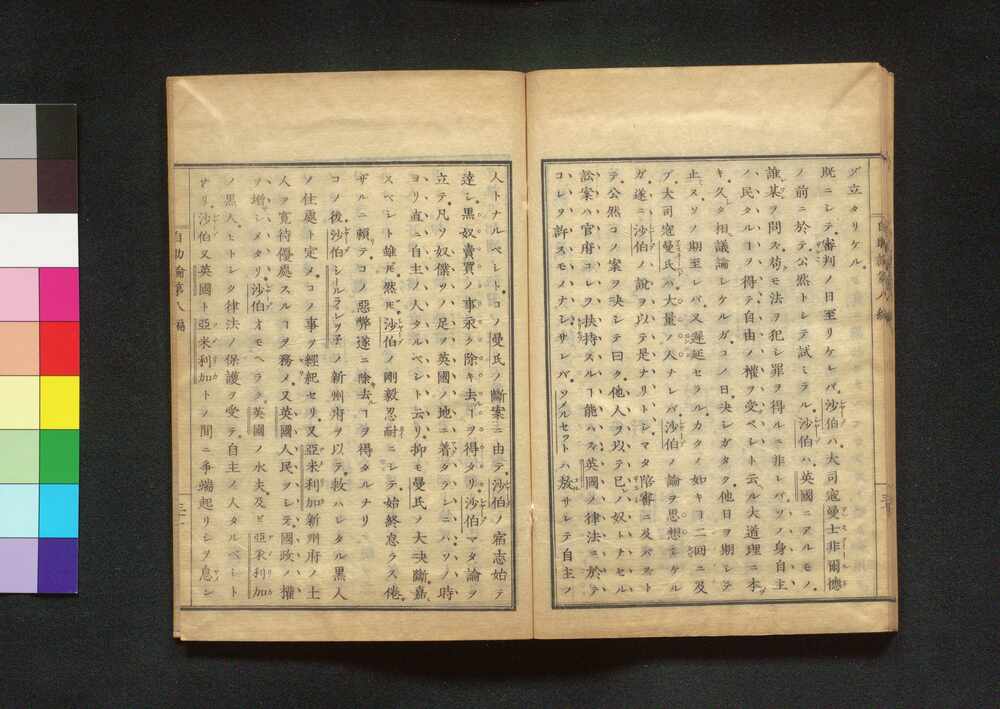 グ立タリケル
既ニシテ審判ノ日至リケレバ沙伯ハ大司寇曼士非爾德
ノ前ニ於テ公然トシテ試ミラル沙伯ハ英國ニアルモノ
誰某ヲ問ズ苟モ法ヲ犯シ罪ヲ得ルニ非レバソノ身自主
ノ民タルヿヲ得テ自由ノ權ヲ受ベシト云ル大道理ニ本
キ久ク相議論シケルガコノ日決シガタク他日ヲ期シテ
止ヌソノ期至レバ又遲延セラルカクノ如キヿ二回ニ及
ブ大司寇曼氏ハ大量ノ人ナレバ沙伯ノ論ヲ思想シケル
ガ遂ニ沙伯ノ說ヲ以テ是ナリトシマタ陪審ニ及バズト
テ公然コノ案ヲ決シテ曰ク他人ヲ以テ已ノ奴トナセル
訟案ハ官府コレヲ扶持スルヿ能ハズ英國ノ律法ニ於テ
コレヲ許スモノナシサレバソムルセットハ放サレテ自主ノ
人トナルベシトコノ曼氏ノ斷案ニ由テ沙伯ノ宿志始テ
達シ黑奴賣買ノ事永ク除キ去ヿヲ得タリ沙伯マタ論ヲ
立テ凡ソ奴僕ソノ足ヲ英國ノ地ニ着タランニハソノ時
ヨリ直ニ自主ノ人タルベシト云リ抑モ曼氏ノ大決斷嘉
スベシト雖𪜈然𪜈沙伯ノ剛毅忍耐ニシテ始終怠ラズ倦
ザルニ賴テコノ惡弊遂ニ除去ヿヲ得タルナリ
コノ後沙伯シールラレヲ子ノ新州府ヲ以テ救ハレタル黑人
ノ住處ト定メコノ事ヲ經紀セリ又亞米利加新州府ノ土
人ヲ寬待優處スルヿヲ務ノ又英國人民ヲシテ國政ノ權
ヲ增シメタリ沙伯オモヘラク英國ノ水夫及ビ亞米利加
ノ黑人ヒトシク律法ノ保護ヲ受テ自主ノ人タルベシト
ナリ沙伯又英國ト亞米利加トノ間ニ爭端起リシヲ息シ
自助論第八編
三十一